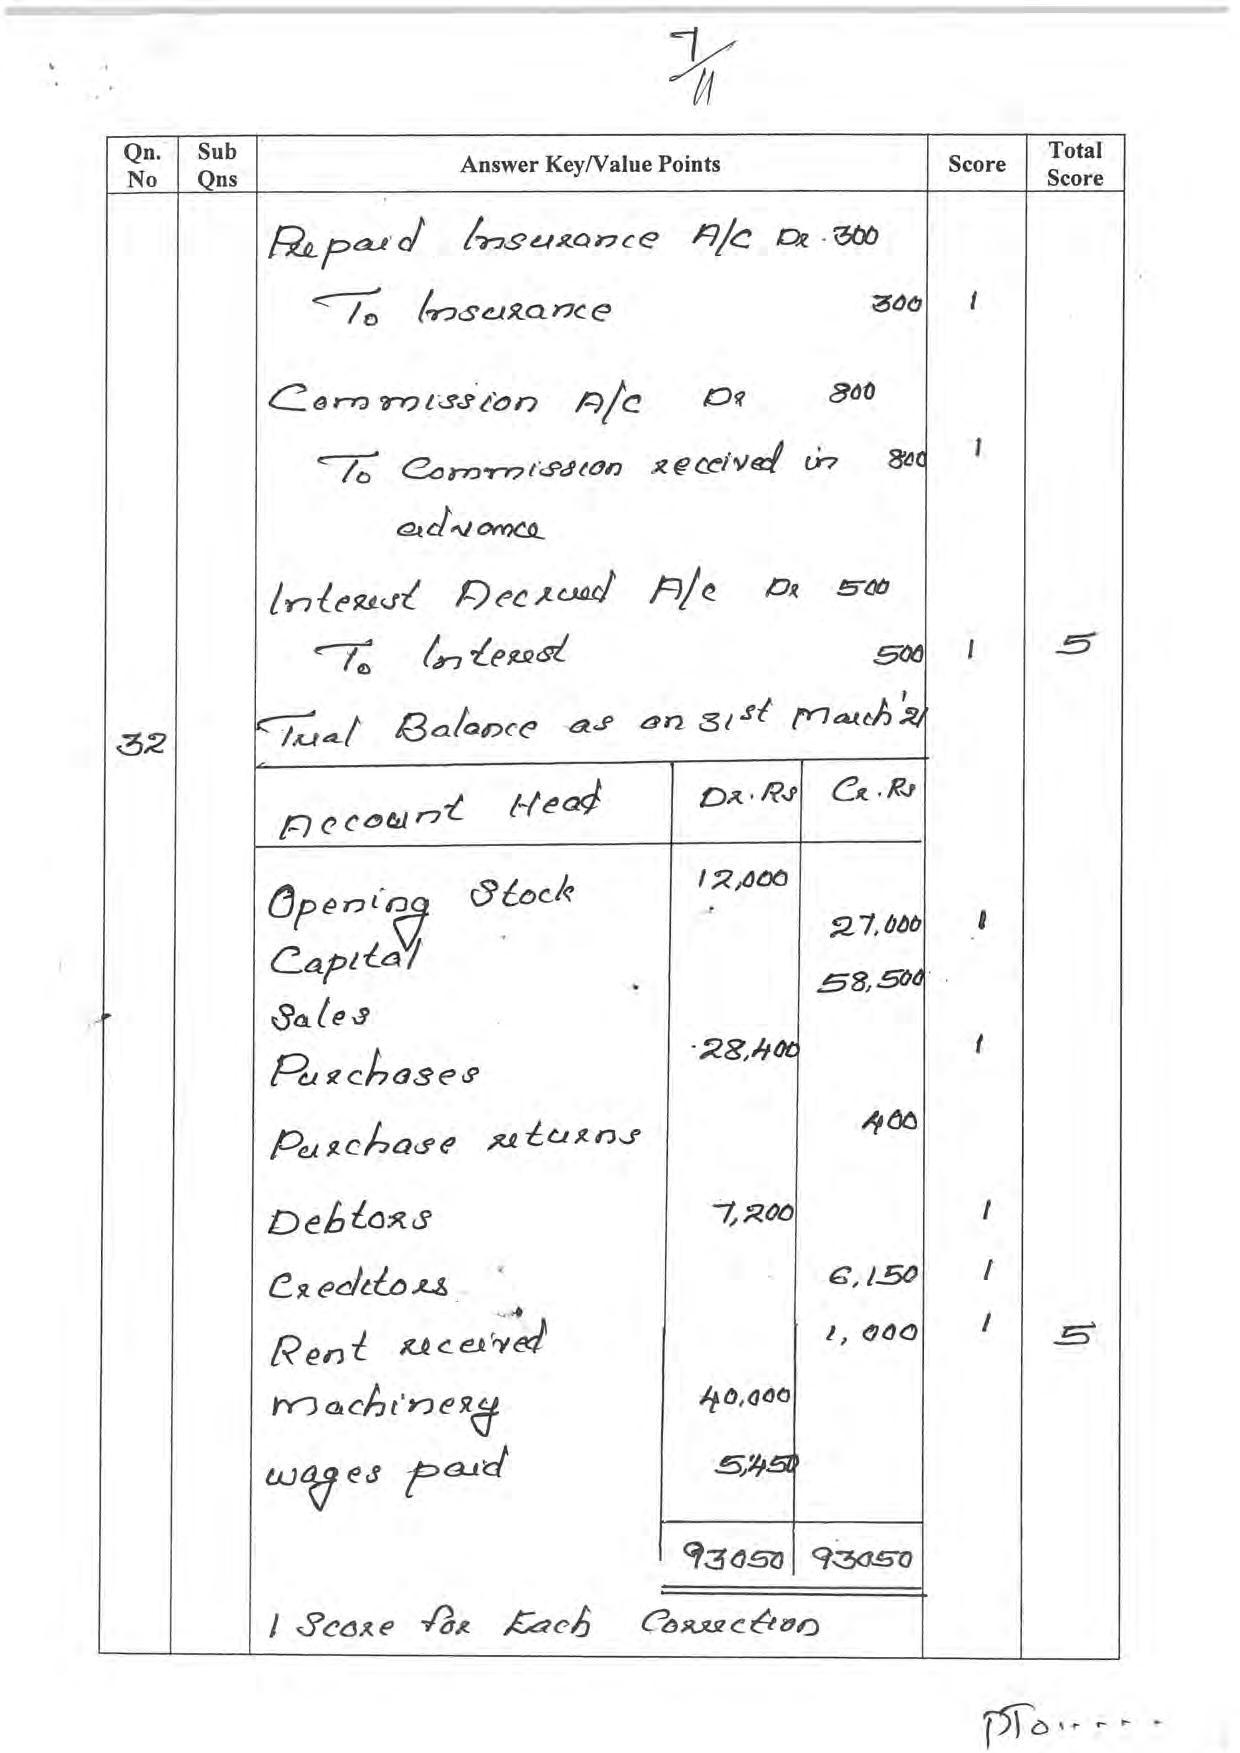 7/11
Qn. No Sub Qns Answer Key/Value Points Score Total Score
Prepaid Insurance A/C Dr. 300
To Insurance 300 1
Commission A/C Dr 800
To Commission received in 800 1
advance
Interest Accrued A/c Dr 500
To Interest 500 1 5
32 Trial Balance as on 31st March '21
Account Head Dr. Rs Cr. Rs
Opening Stock 12,000
Capital 27,000 1
Sales 58,500
Purchases 28,400 1
Purchase returns 400
Debtors 7,200 1
Creditors 6,150 1
Rent received 1,000 1 5
Machinery 40,000
wages paid 5,450
93050 93050
1 Score for Each Correction
PTO.....